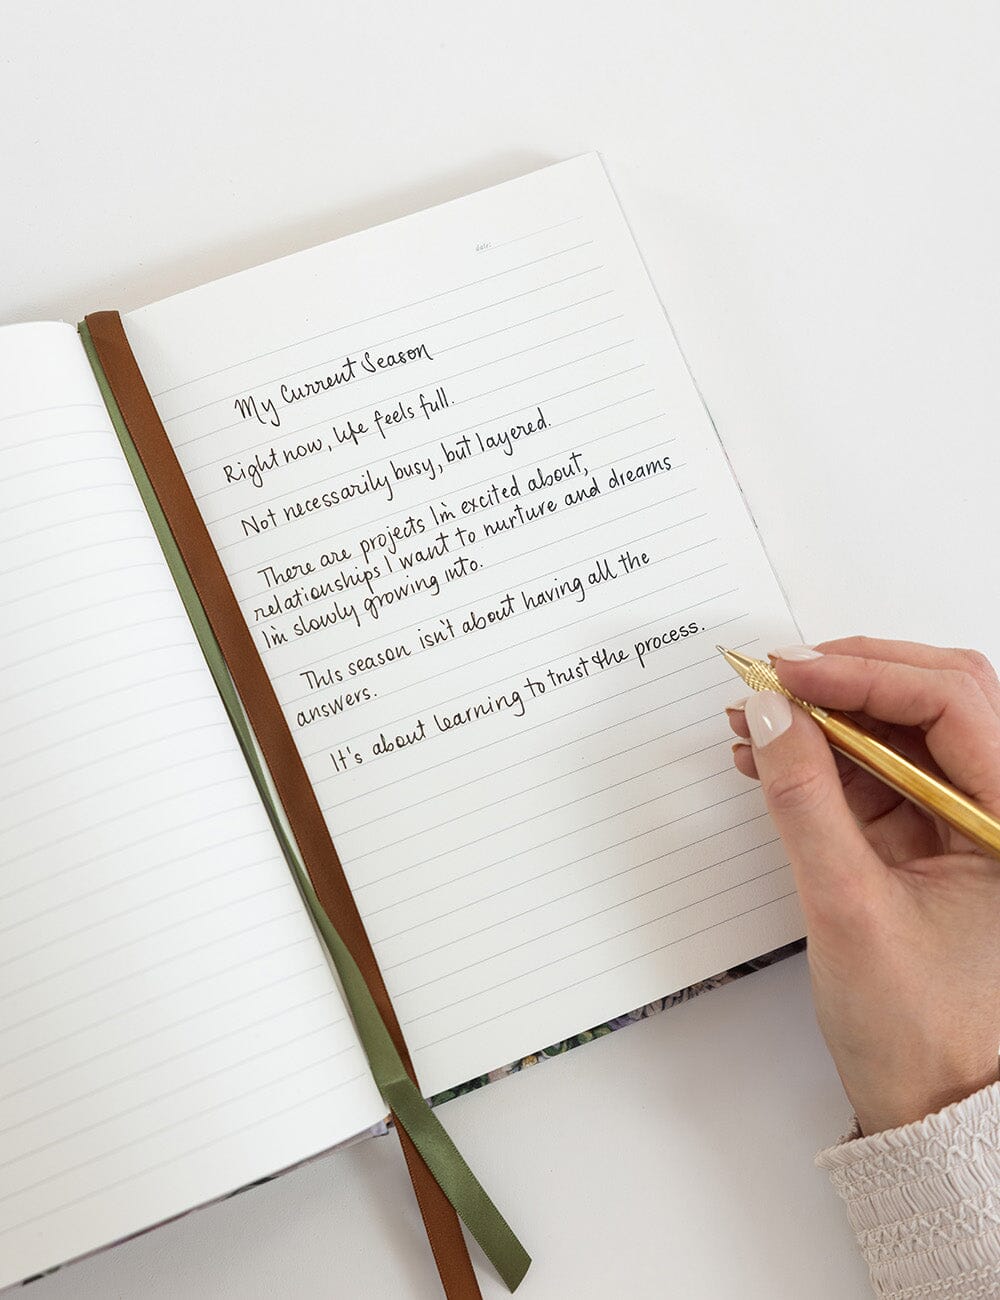 date:
My Current Season
Right now, life feels full.
Not necessarily busy, but layered.
There are projects I'm excited about,
relationships I want to nurture and dreams
I'm slowly growing into.
This season isn't about having all the
answers.
It's about learning to trust the process.